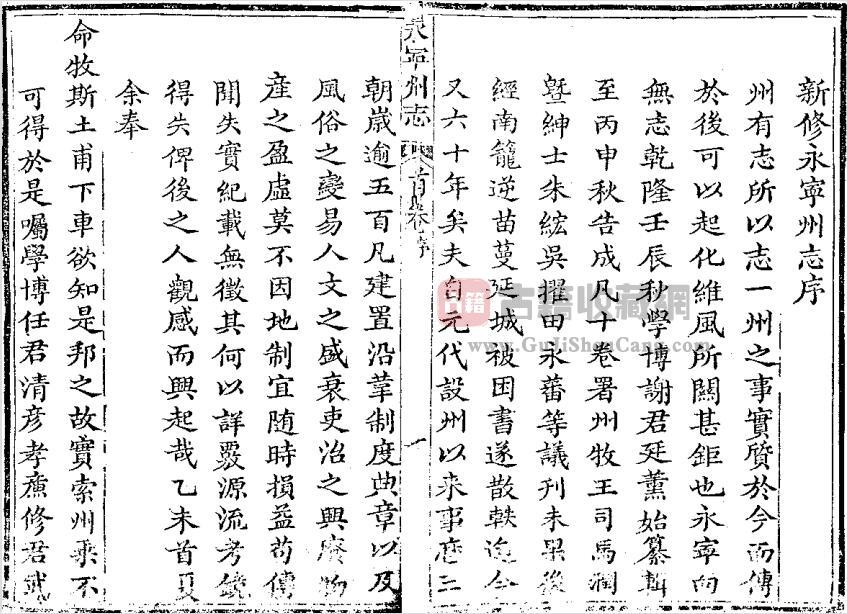 新修永寧州志序
州有志所以志一州之事實質於今而傳
於後可以起化維風所關甚鉅也永寧向
無志乾隆壬辰秋學博謝君廷薰始纂輯
至丙申秋告成凡十卷署州牧王司馬潤
暨紳士朱絃吳擢田永蕃等議刊未果後
經南籠逆苗蔓延城被困書遂散軼迄今
又六十年矣夫自元代設州以來事歷三
永寧州志 首卷 序 一
朝歲逾五百凡建置沿革制度典章以及
風俗之變易人文之盛衰吏治之興廢物
產之盈虛莫不因地制宜随時損益苟傳
聞失實紀載無徵其何以詳覈源流考鏡
得失俾後之人觀感而興起哉乙未首夏
余奉
命牧斯土甫下車欲知是邦之故實索州乘不
可得於是囑學博任君清彥孝廉修君武
古籍
古籍收藏網
www.GuJiShouCang.com